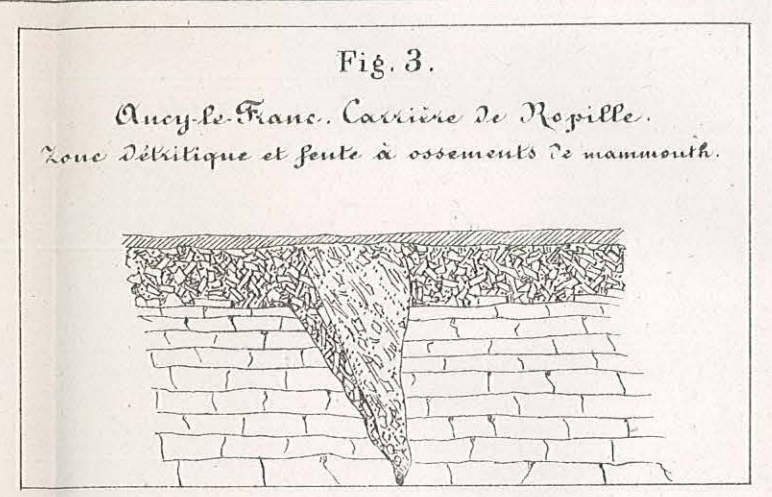 Fig. 3.
Ancy-le-Franc. Carrière de Ropille.
Zone détritique et fente à ossements de mammouth.